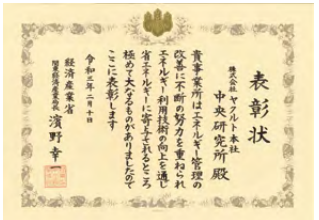 表彰状
株式会社 ヤクルト本社
中央研究所 殿
貴事業所はエネルギー管理の
改善に不断の努力を重ねられ
エネルギー利用技術の向上を通じ
省エネルギーに寄与されるところ
極めて大なるものがありましたので
ここに表彰します
令和三年二月十日
経済産業省
関東経済産業局長 濱野幸